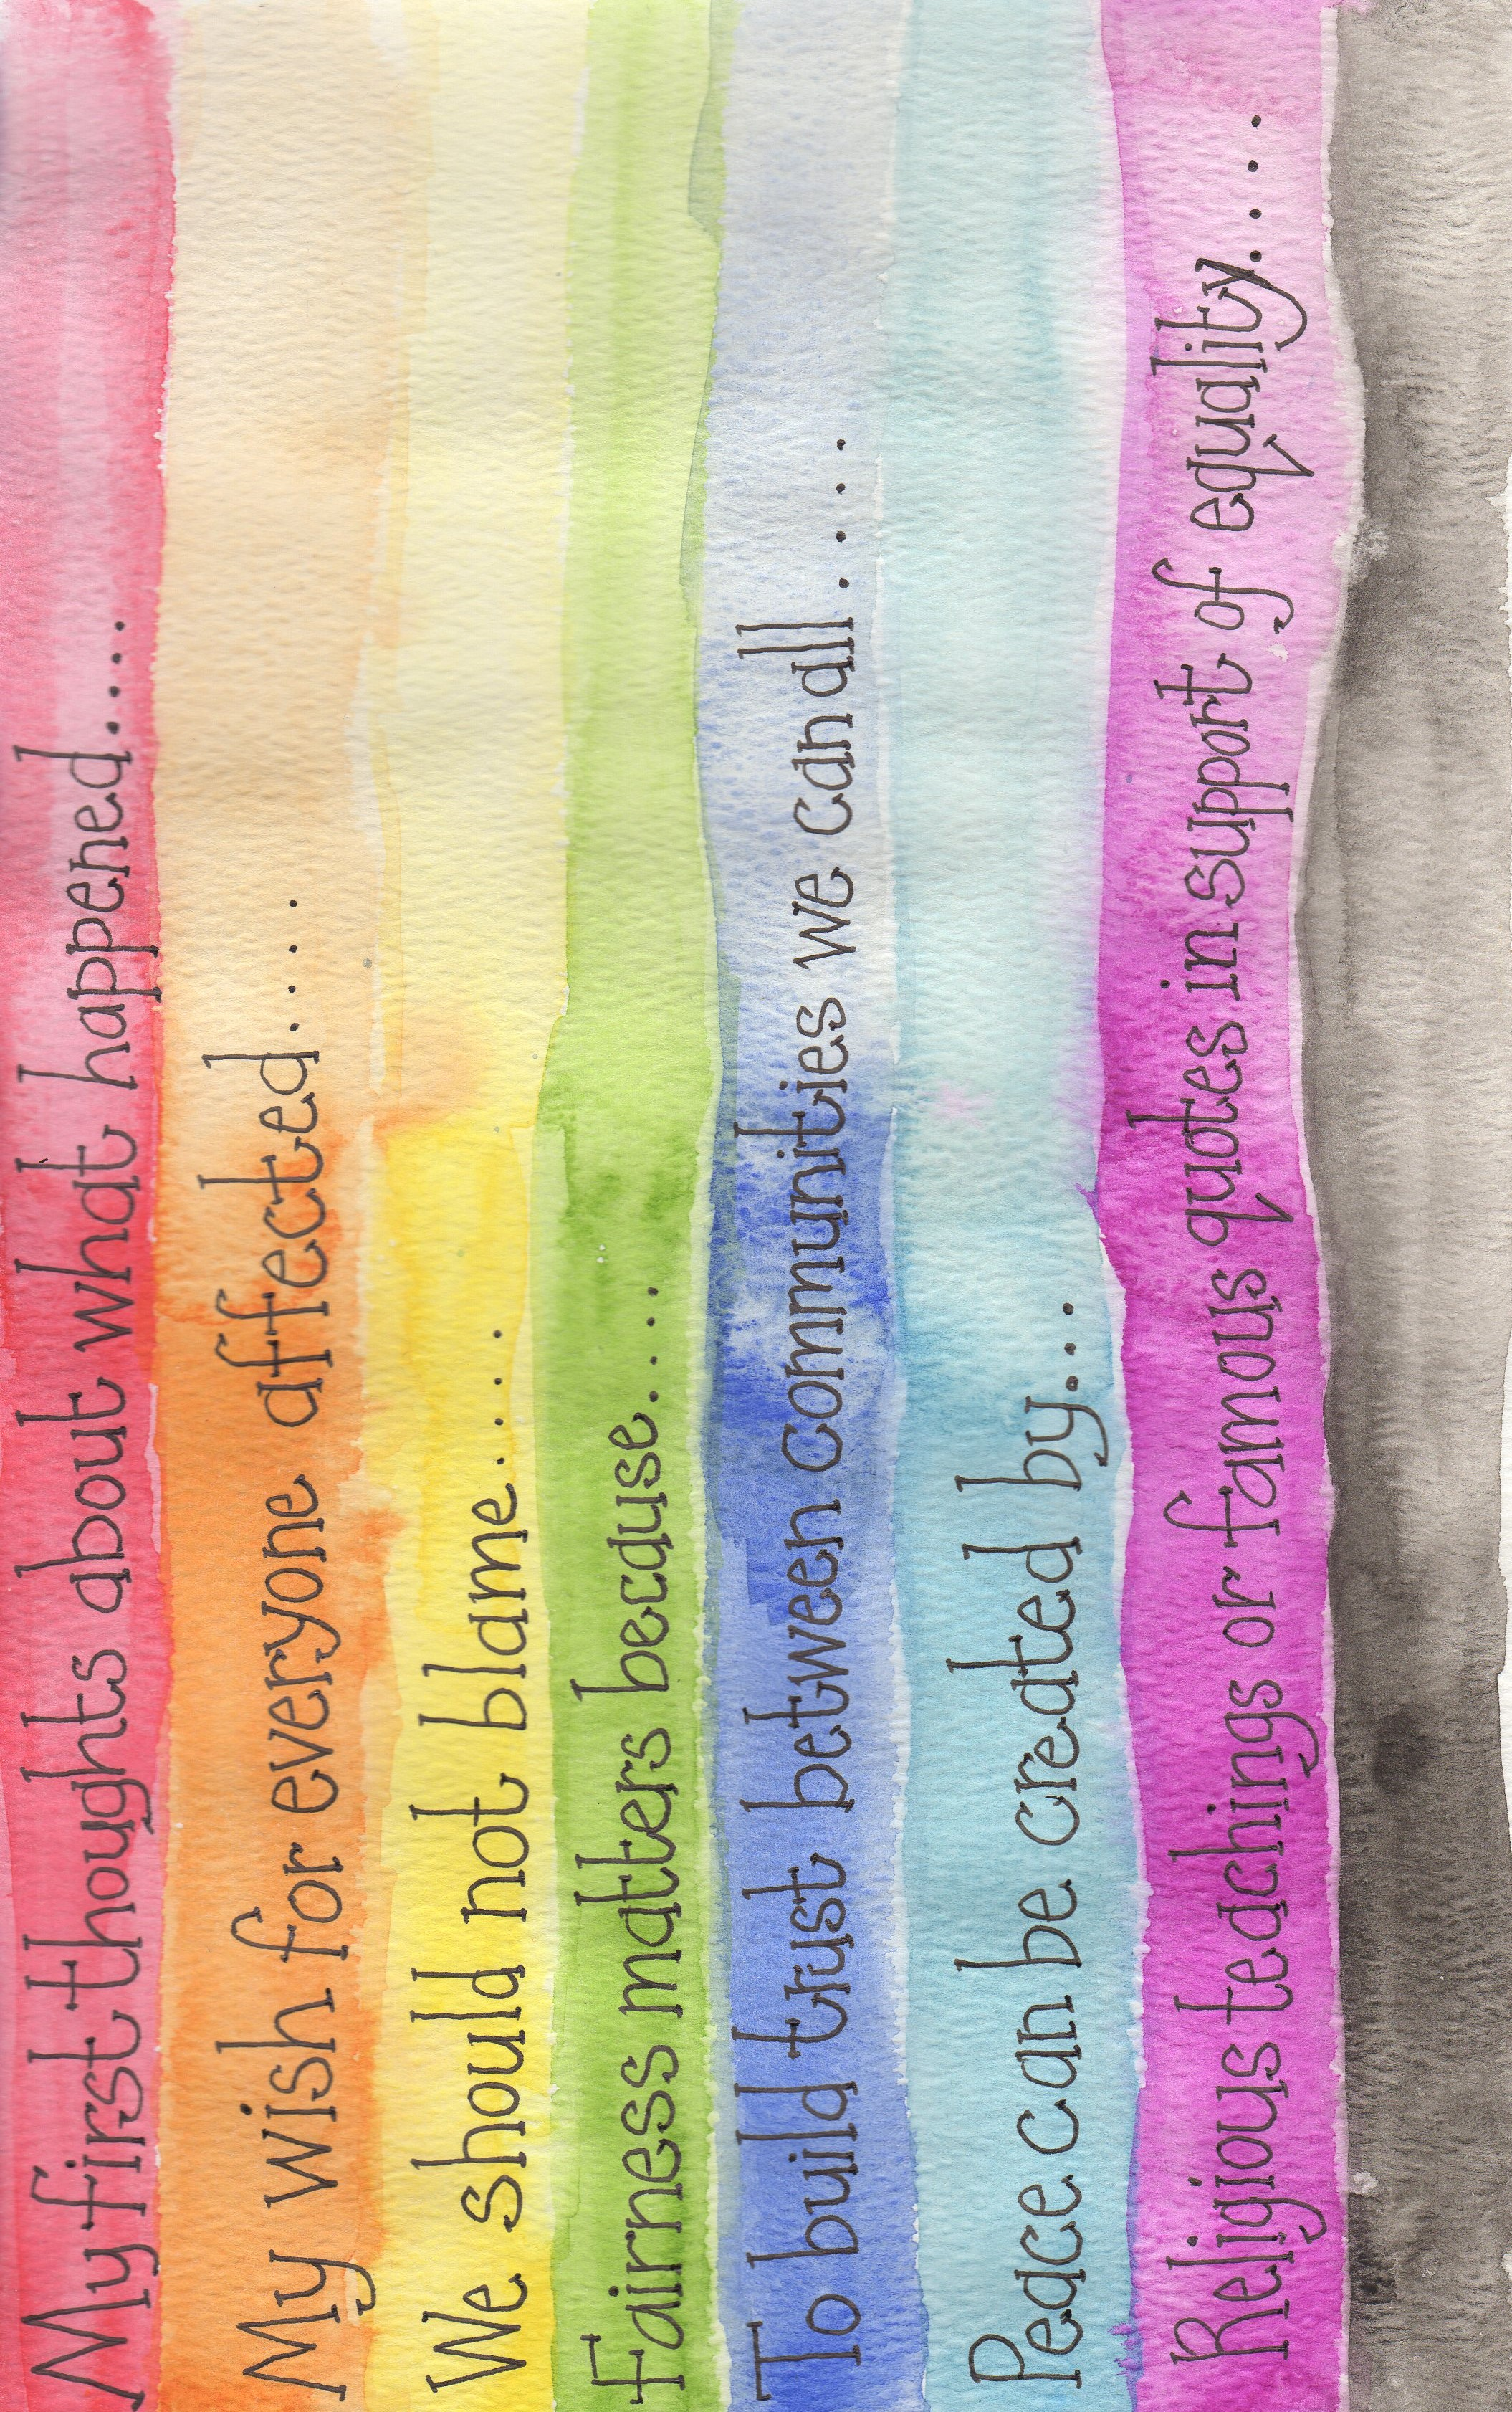 My first thoughts about what happened....
My wish for everyone affected.....
We should not blame.....
Fairness matters because.....
To build trust between communities we can all.....
Peace can be created by...
Religious teachings or famous quotes in support of equality.....